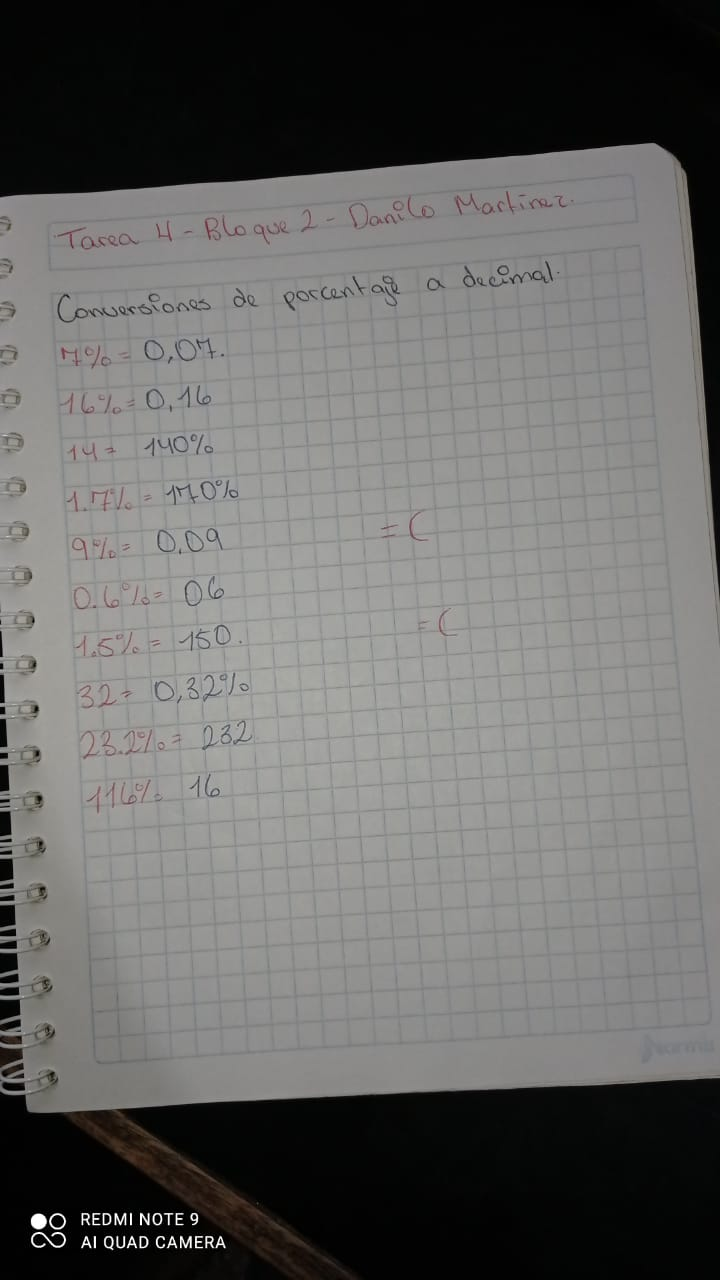 Tarea 4 - Bloque 2 - Danilo Martinez.
Conversiones de porcentaje a decimal.
7% = 0,07.
16% = 0,16
14 = 140%
1.7% = 170%
9% = 0,09 = (
0.6% = 06
1.5% = 150. = (
32 = 0,32%
23.2% = 232
116% 16
REDMI NOTE 9
AI QUAD CAMERA